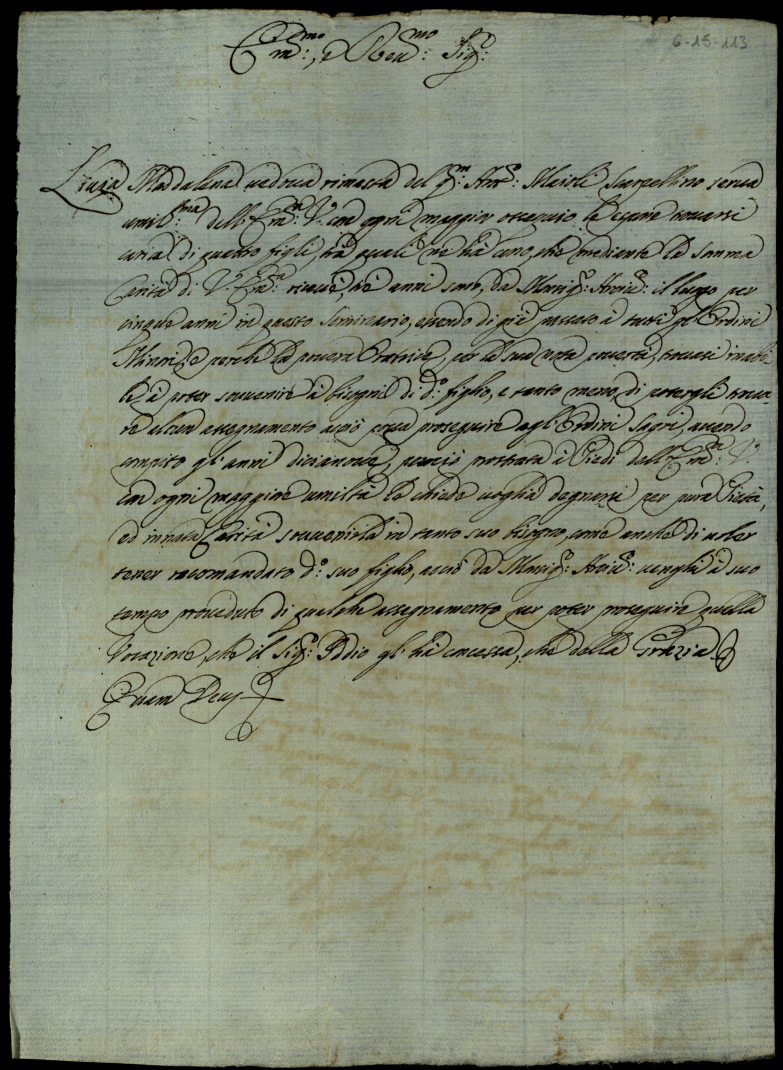 6-15-113
Em.mo, e Reu.mo Sig.r
Lucia Maddalena uedoua rimasta del q.m Ant.o Meioli Scarpellino serua
umil.ma dell'Em.za V.ra con ogni maggior ossequio le espone trouarsi
carica di quattro figli, trà quali ne hà uno, che mediante la somma
Carità di V.ra Em.za riceuè, trè anni sono, da Monsig.r Arciu.o il luogo per
cinque anni in questo Seminario, essendo di già passato à tutti gl'Ordini
Minori, e perche la pouera Oratrice, per la sua nota pouertà, trouasi inabi-
le à poter souuenire à bisogni di d.o figlio, e tanto meno, di potergli troua-
re alcun assegnamento acciò possa proseguire agl'Ordini Sagri, auendo
compito gl'anni dicianoue, perciò prostrata à Piedi dell'Em.za V.ra
con ogni maggiore umiltà la chiede uoglia degnarsi per pura Pietà,
ed innata Carità souuenirla in tanto suo bisogno, come anche di uoler
tener racomandato d.o suo figlio, acciò da Monsig.r Arciu.o uenghi à suo
tempo proueduto di qualche assegnamento per poter proseguire quella
Vocazione, che il Sig.re Iddio gl'hà concessa, che della Grazia
Quam Deus